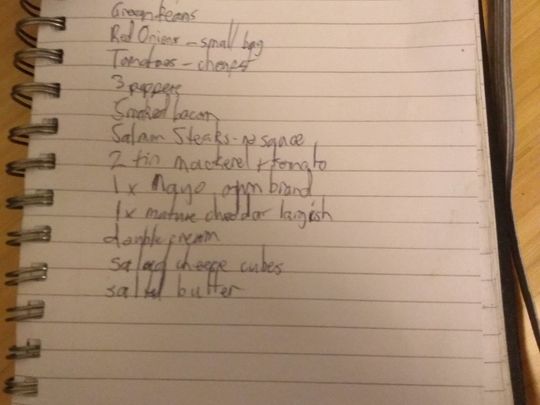 Green Beans
Red Onions - small bag
Tomatoes - cheapest
3 peppers
Smoked bacon
Salmon Steaks - no sauce
2 tin mackerel + tomato
1 x Mayo own brand
1 x mature cheddar largish
double cream
salad cheese cubes
salted butter